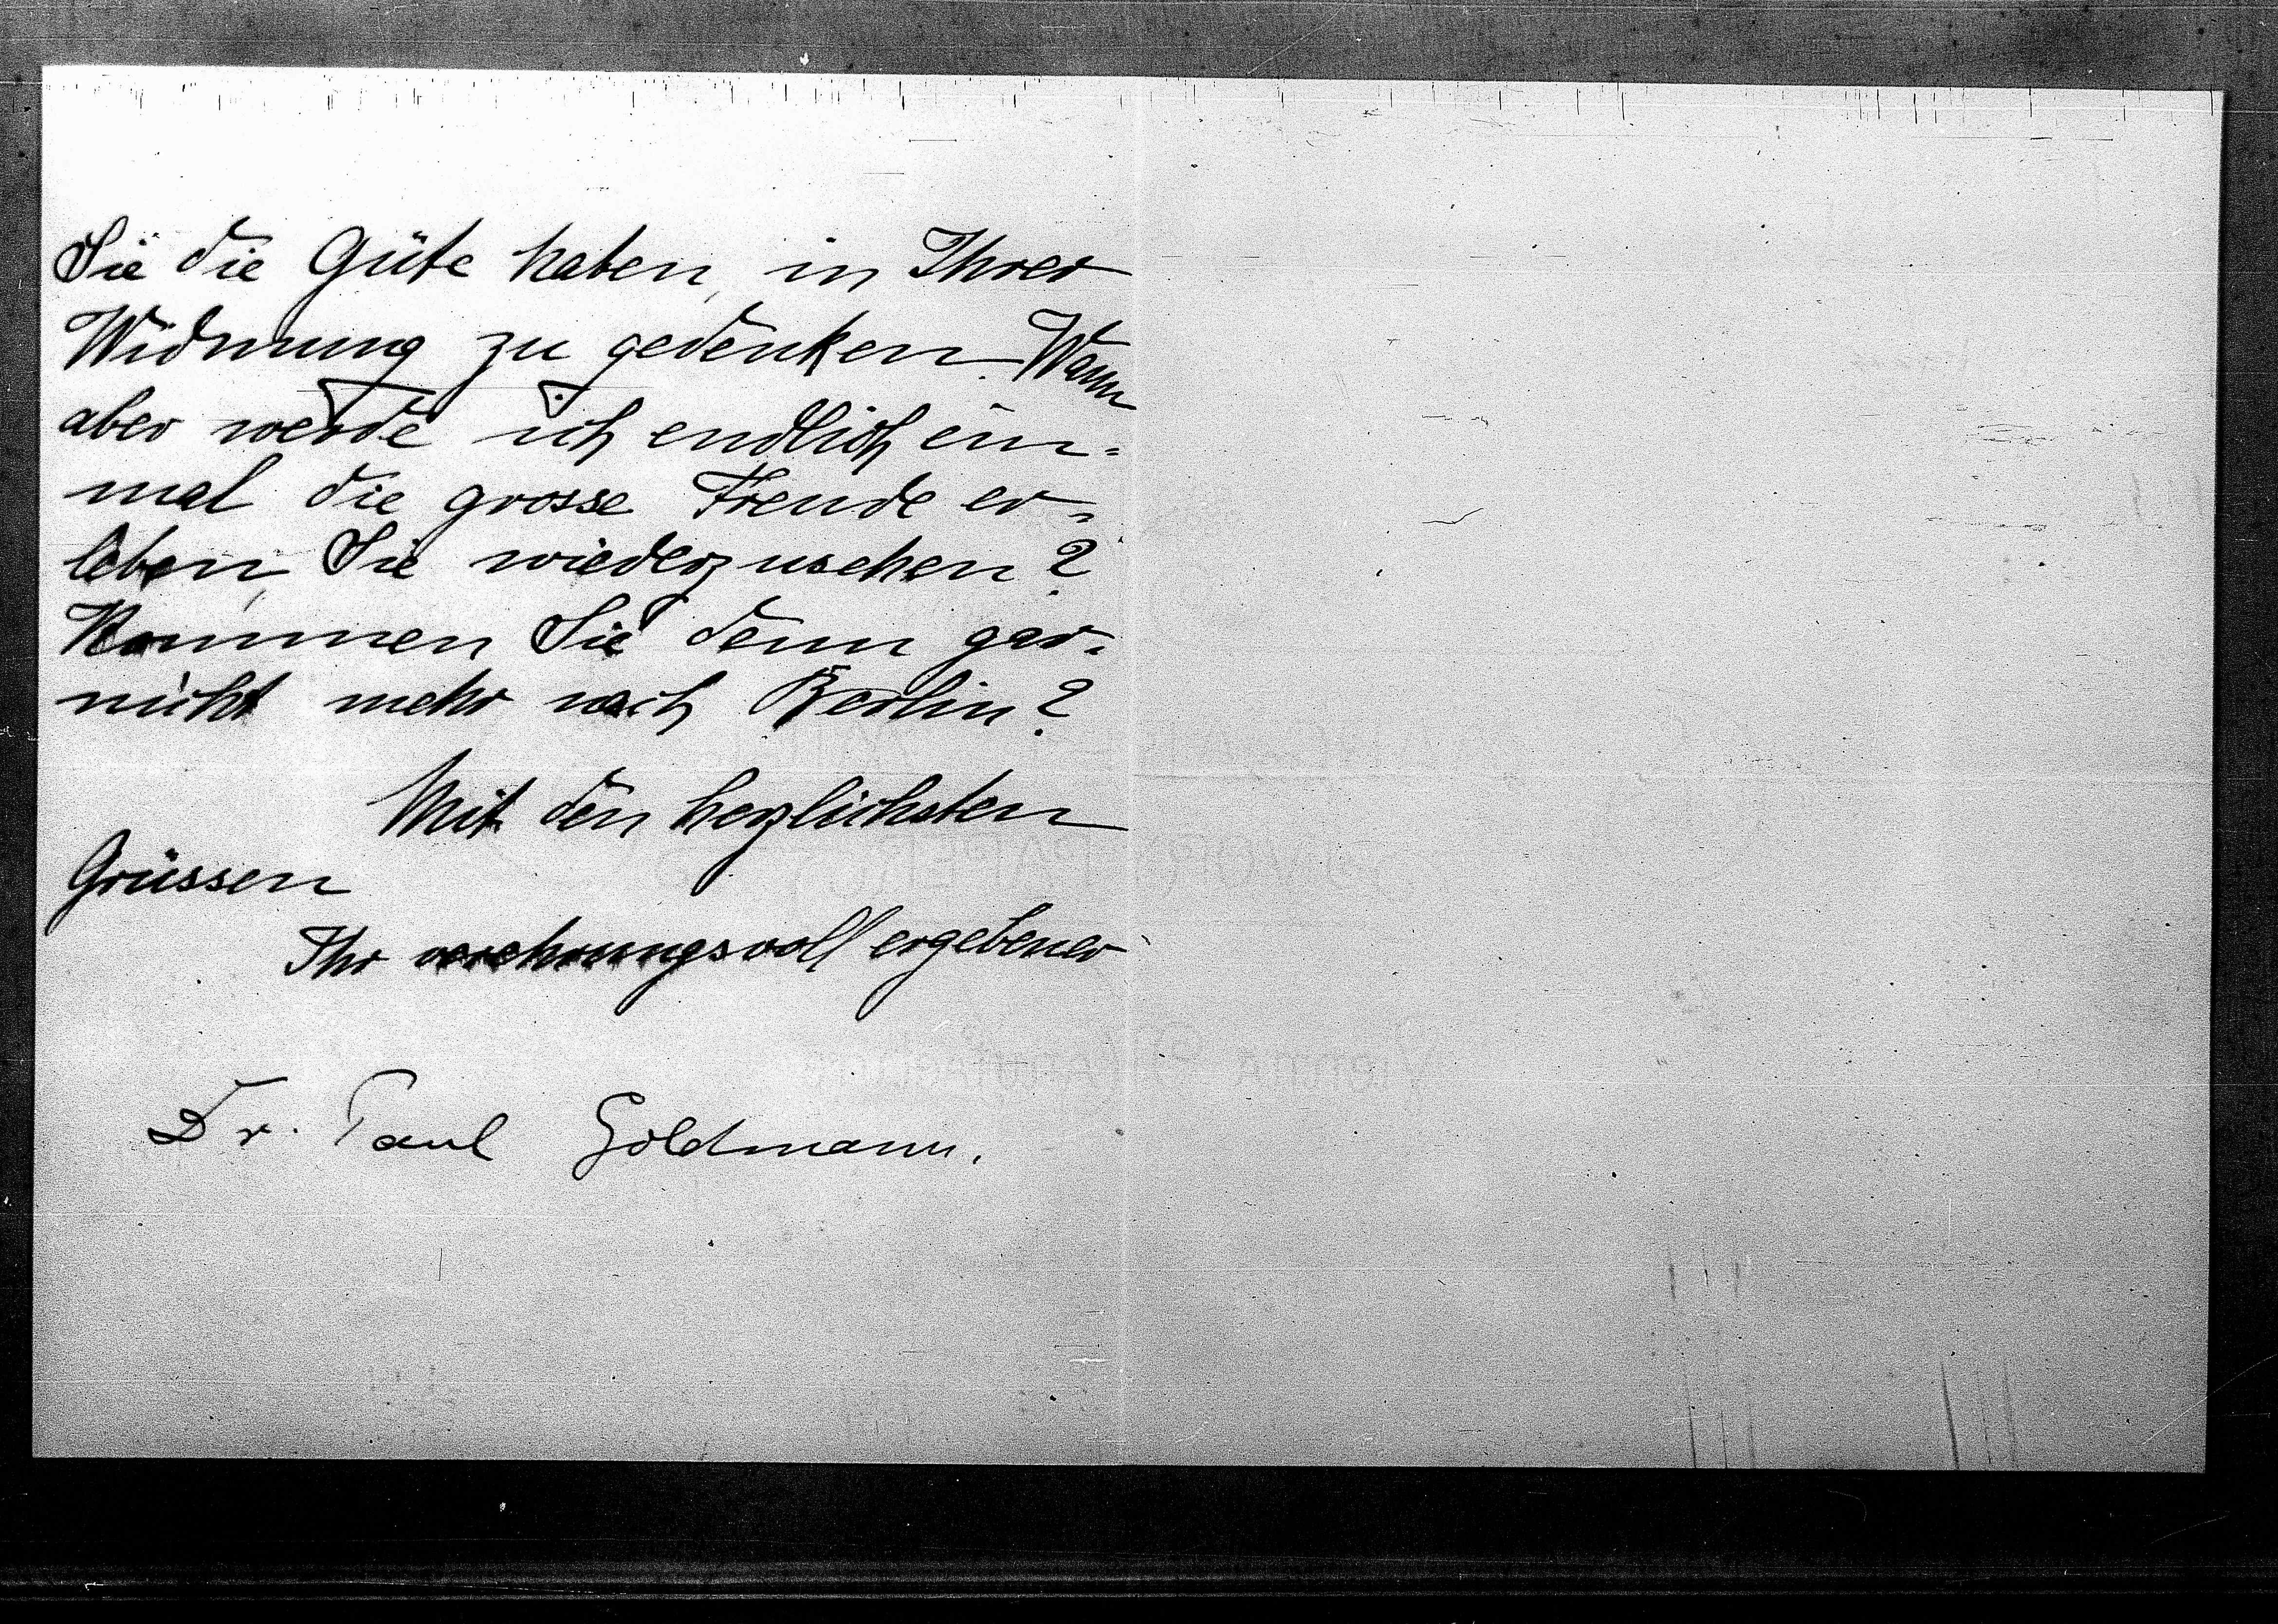 Sie die Güte haben, in Ihrer
Widmung zu gedenken. Wann
aber werde ich endlich ein-
mal die grosse Freude er-
leben, Sie wiederzusehen?
Kommen Sie denn gar-
nicht mehr nach Berlin?
Mit den herzlichsten
Grüssen
Ihr verehrungsvoll ergebener
Dr. Paul Goldmann.